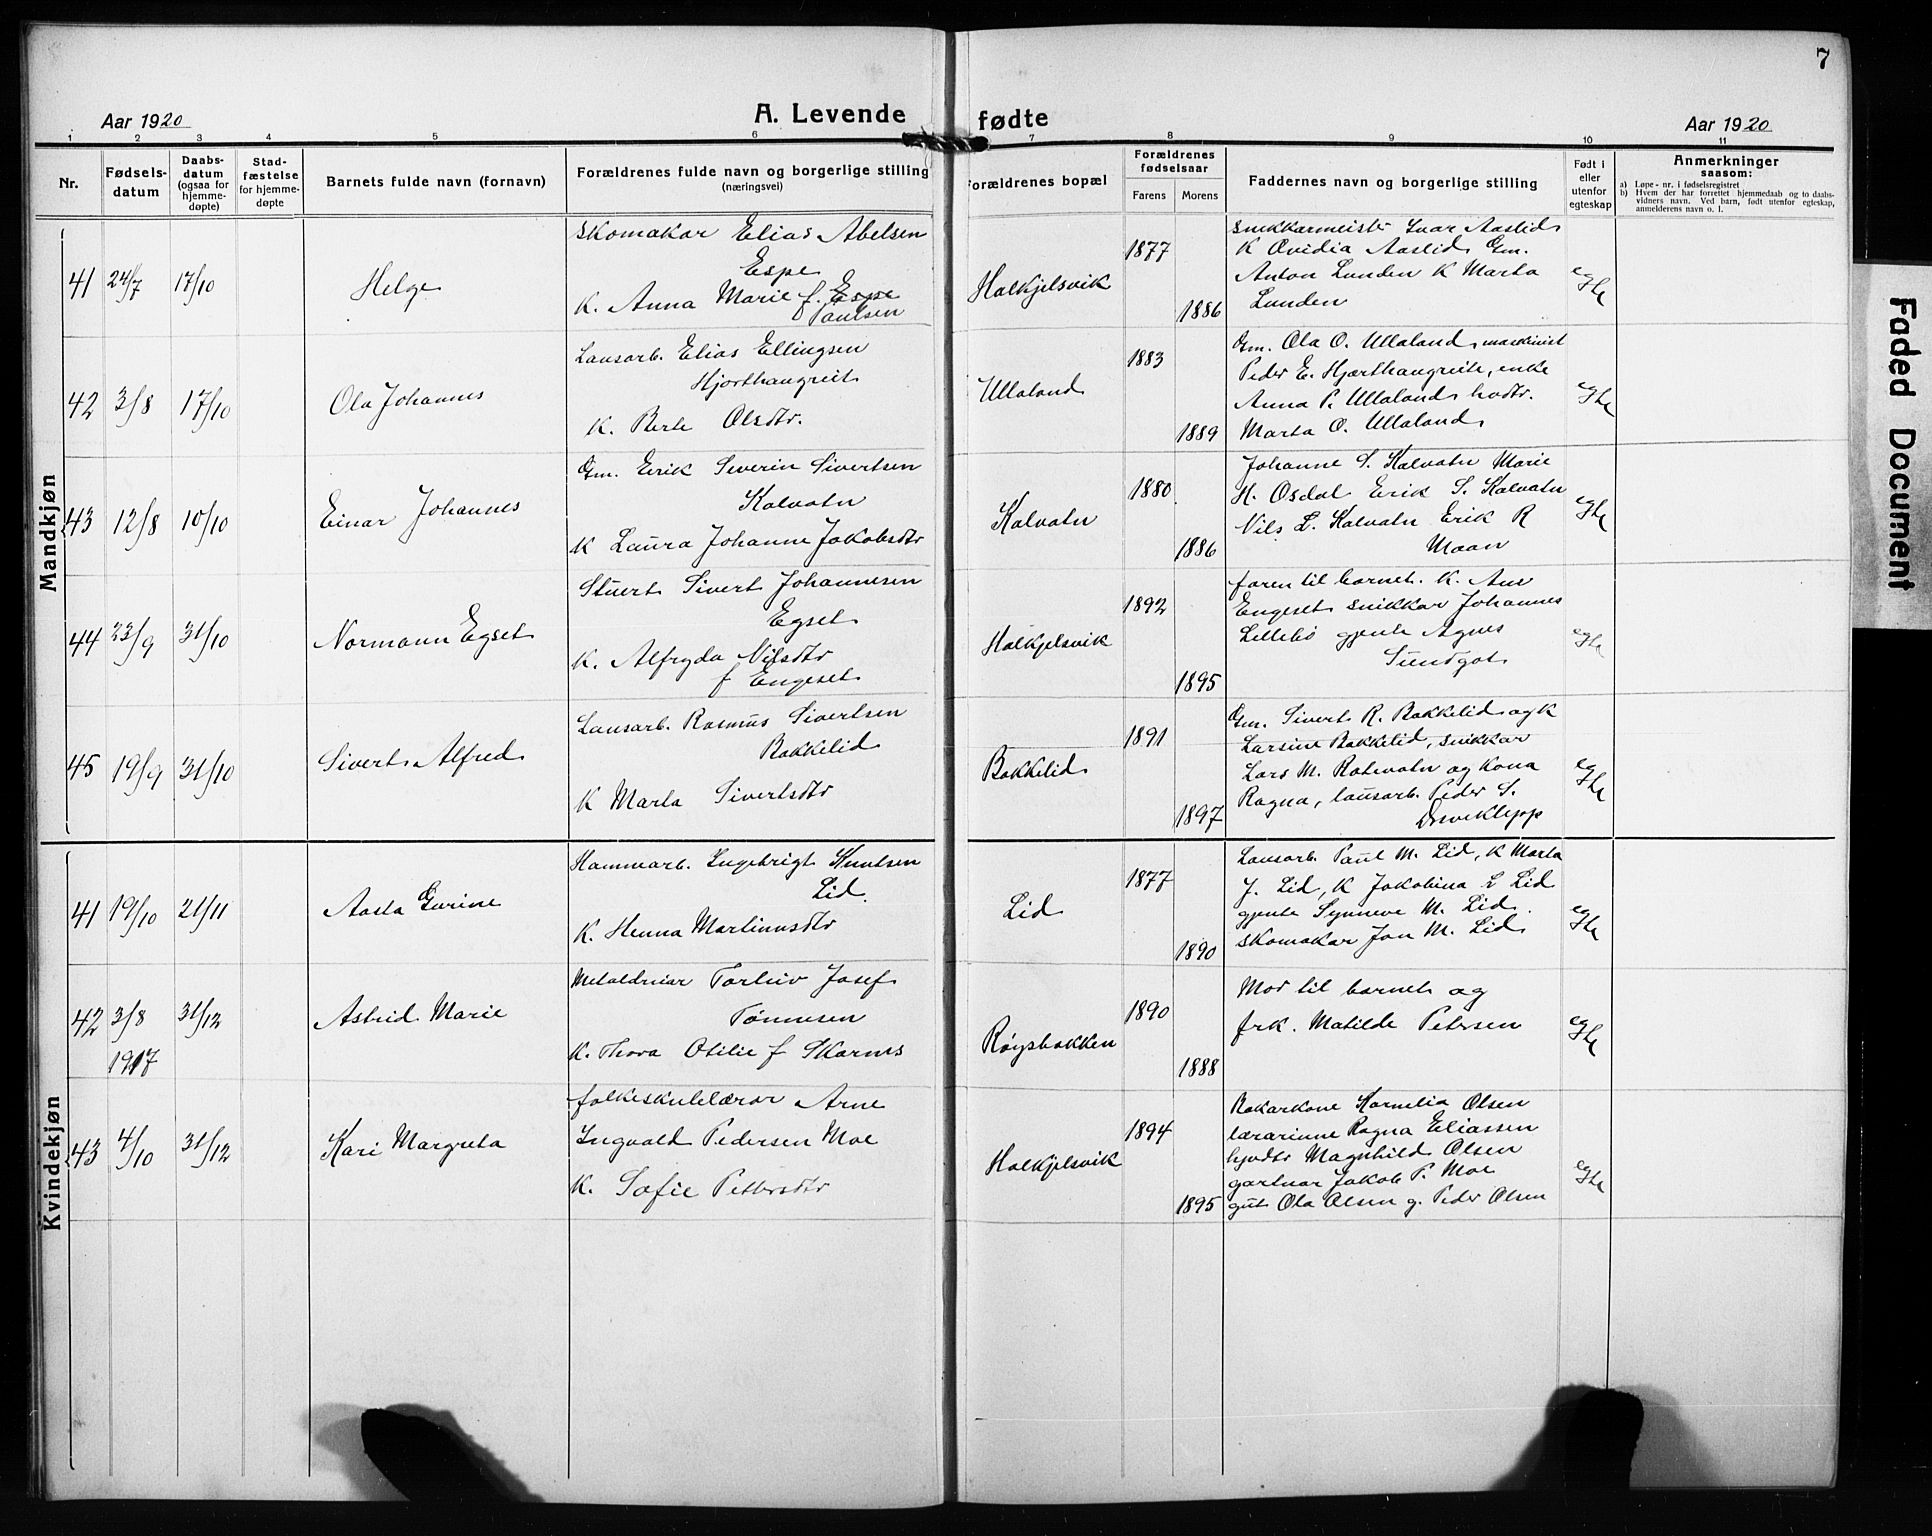 7
Aar 1920
A. Levende fødte
Aar 1920
1 2 3 4 5 6 7 8 9 10 11
Nr.
Fødselsdatum
Daabsdatum (ogsaa for hjemmedøpte)
Stadfæstelse for hjemmedøpte
Barnets fulde navn (fornavn)
Forældrenes fulde navn og borgerlige stilling (næringsvei)
Forældrenes bopæl
Forældrenes fødselsaar
Farens
Morens
Faddernes navn og borgerlige stilling
Født i eller utenfor egteskap
Anmerkninger saasom:
a) Løpe-nr. i fødselsregistret
b) Hvem der har forrettet hjemmedaab og to daabsvidners navn. Ved barn, født utenfor egteskap, anmelderens navn o. l.
Mandkjøn
41 24/7 17/10 Helge
Skomakar Elias Abelsen
Espe
K. Anna Marie f. Espe
Paulsen
Halkjelsvik
1877
1886
snikkarmeister Ivar Aaslid
K Ovidia Aaslid Gm.
Anton Lunden K Marta
Lunden
egte
42 3/8 17/10 Ola Johannes
Lausarb. Elias Ellingsen
Hjorthaugreit
K. Berte Olsdtr.
Ullaland
1883
1889
Gm. Ola O. Ullaland, maskinist
Peder E. Hjorthaugreite, enke
Anna P. Ullaland, hvdtr.
Marta O. Ullaland
egte
43 12/8 10/10 Einar Johannes
Gm. Eirik Severin Sivertsen
Kalvatn
K Laura Johanne Jakobsdtr
Kalvatn
1880
1886
Johanne S. Kalvatn Marie
H. Osdal Erik S. Kalvatn
Nils L. Kalvatn Erik R
Maan
egte
44 23/9 31/10 Normann Egset
Stuert Sivert Johannesen
Egset
K. Alfryda Nilsdtr
f Engeset
Halkjelsvik
1892
1895
faren til barnet. K. Ane
Engeset snikkar Johannes
Lillebö gjente Agnes
Sundgot
egte
45 19/9 31/10 Sivert Alfred
Lausarb. Rasmus Sivertsen
Bakkelid
K Marta Sivertsdtr
Bakkelid
1891
1897
Gm. Sivert R. Bakkelid og K
Larsine Bakkelid, snikkar
Lars M. Rotevatn og Kona
Ragna, lausarb. Peder S.
Draveklepp
egte
Kvindekjøn
41 19/10 21/11 Aasta Gurine
Hammarb. Ingebrigt Knutsen
Lid.
K. Henna Martinusdtr
Lid
1877
1890
Lausarb. Paul M. Lid, K Marta
J. Lid, K Jakobina L Lid
gjente Synneve M. Lid.
skomakar Jon M. Lid
egte
42 3/8 31/12 Astrid Marie
1917
Metaldreiar Torleiv Josef
Tönnesen
K. Thora Otilie f Skarnes
Röysbakken
1890
1888
Mor til barnet og
frk. Matilde Petersen
egte
43 4/10 31/12 Kari Margreta
folkeskulelærar Arne
Ingvald Pedersen Moe
K. Sofie Pettersdtr
Halkjelsvik
1894
1895
Bakarkone Kornelia Olsen
lærarinne Ragna Eliassen
hvdtr Magnhild Olsen
gartnar Jakob P. Moe
gut Ola Olsen g. Peder Olsen
egte
Faded Document